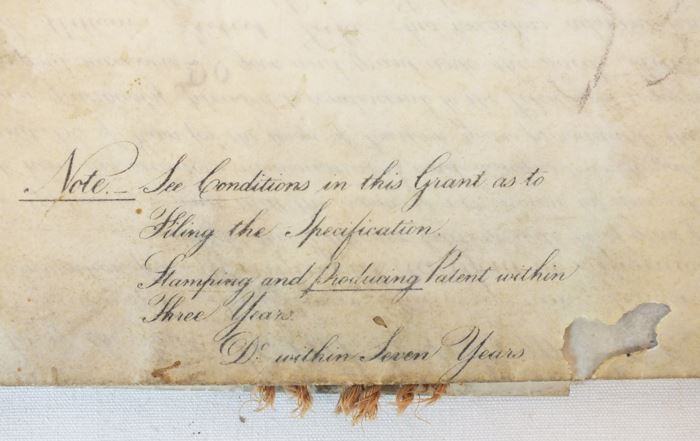 Note. — See Conditions in this Grant as to
Filing the Specification.
Stamping and Producing Patent within
Three Years.
Do. within Seven Years